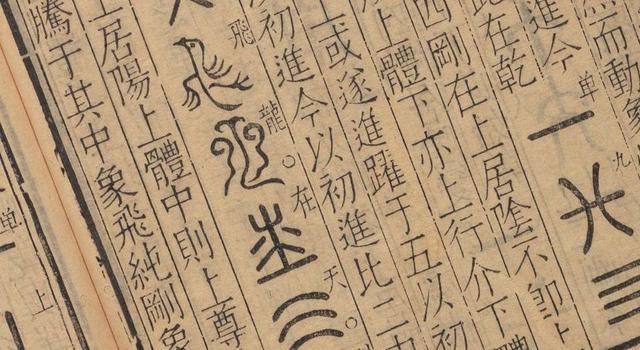 然而動象
進今
单
九
此在乾
四剛在上居陰不即上
上體下亦上行介下體
上或遂進躍于五以初
初進今以初進比二中
飛龍在天
上居陽上體中則上尊
騰于其中象飛純剛象
单上